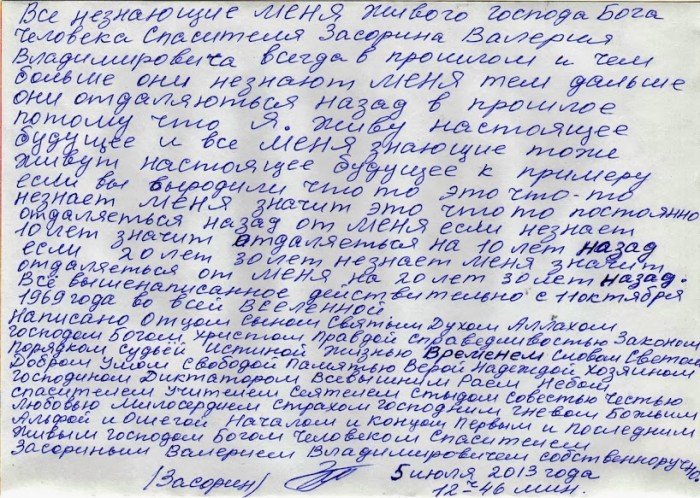 Все незнающие меня живого господа бога
человека спасителя Засорина Валерия
Владимировича всегда в прошлом и чем
больше они незнают меня тем дальше
они отдаляються назад в прошлое
потому что я. живу настоящее
будущее и все меня знающие тоже
живут настоящее будущее к примеру
если вы выродили что то это что-то
незнает меня значит это что то постоянно
отдаляеться назад от меня если незнает
10 лет значит отдаляеться на 10 лет назад
если 20 лет 30 лет незнает меня значит
отдаляеться от меня на 20 лет 30 лет назад.
Всё вышенаписанное действительно с 11 октября
1969 года во всей вселенной.
Написано отцом сыном святым духом Аллахом
господом богом христом правдой справедливостью законом
порядком судьёй истиной жизнью временем словом светом
добром умом свободой памятью верой надеждой хозяином
господином диктатором всевышним раем небом
спасителем учителем сеятелем стыдом совестью честью
любовью милосердием страхом господним гневом божьим
альфой и омегой началом и концом первым и последним
живым господом богом человеком спасителем
Засориным Валерием Владимировичем собственноручно
(Засорин) 5 июля 2013 года
12 ч 46 мин.